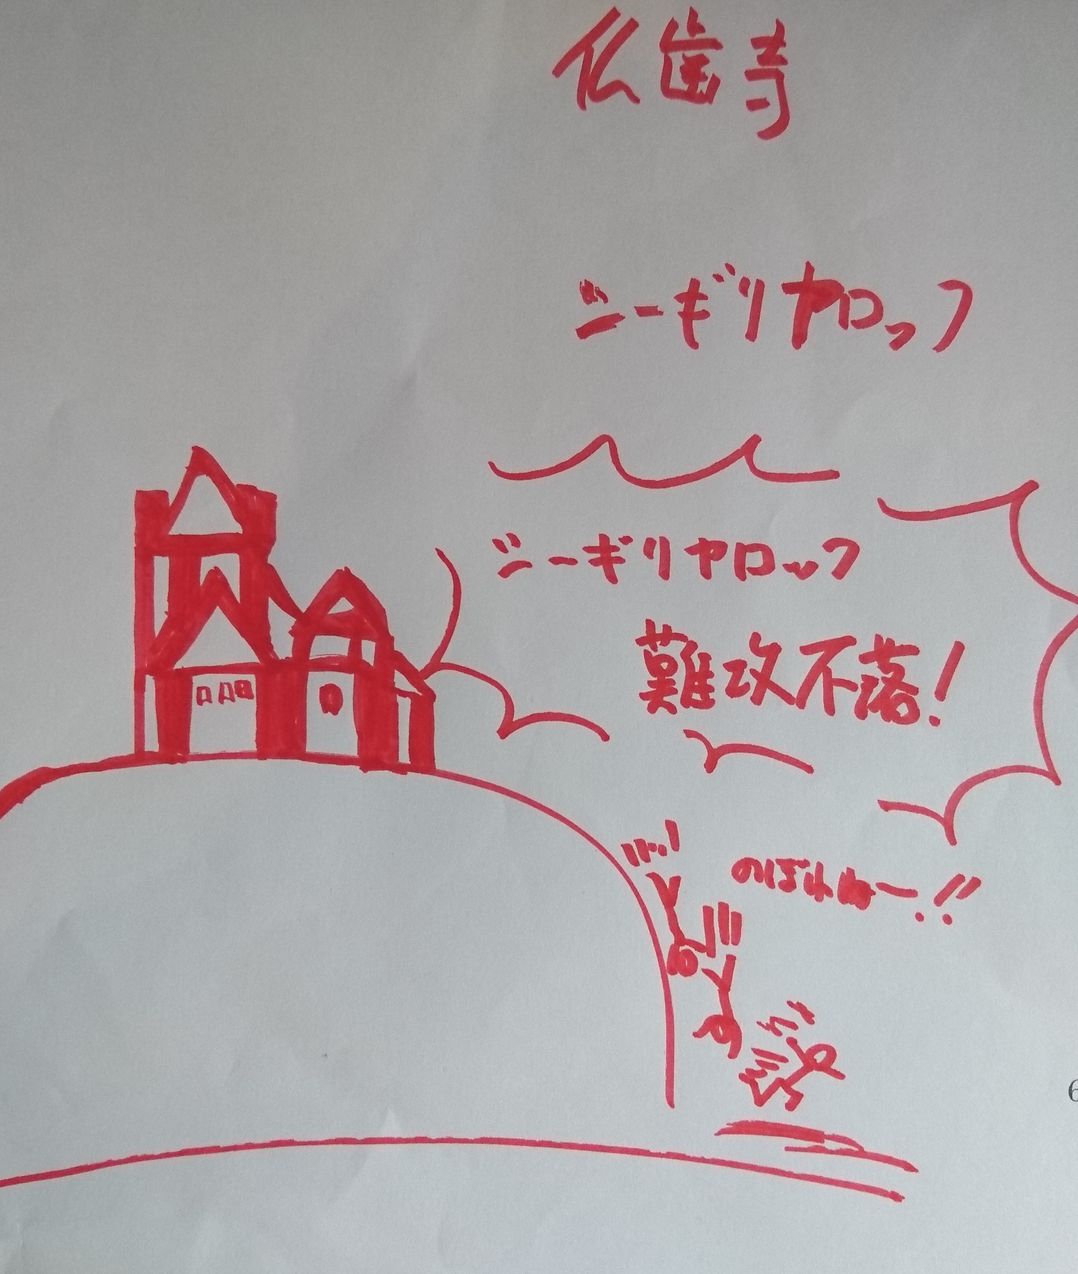 仏歯寺
シーギリヤロック
シーギリヤロック
難攻不落!
のぼれねー!!
6